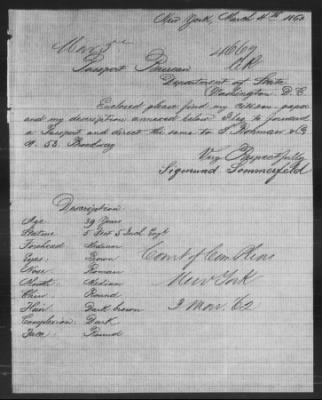 New York, March 4th 186
Mar 5
Passport Bureau
Department of State
Washington D. C.
Enclosed please find my citizen paper
and my description annexed below. Pleas to forward
a Passport and direct the same to
53. Broadway
Very Respectfully
Sigmund Sommerfeld
Description
Age 39 Years
Stature 5 Feet 5 Inch Engl
Forehead Medium
Eyes Brown
Nose Roman
Mouth Medium
Chin Round
Hair Dark brown
Complexion Dark
Face Round
Court of Com Pleas
New York
3 Mar. 62